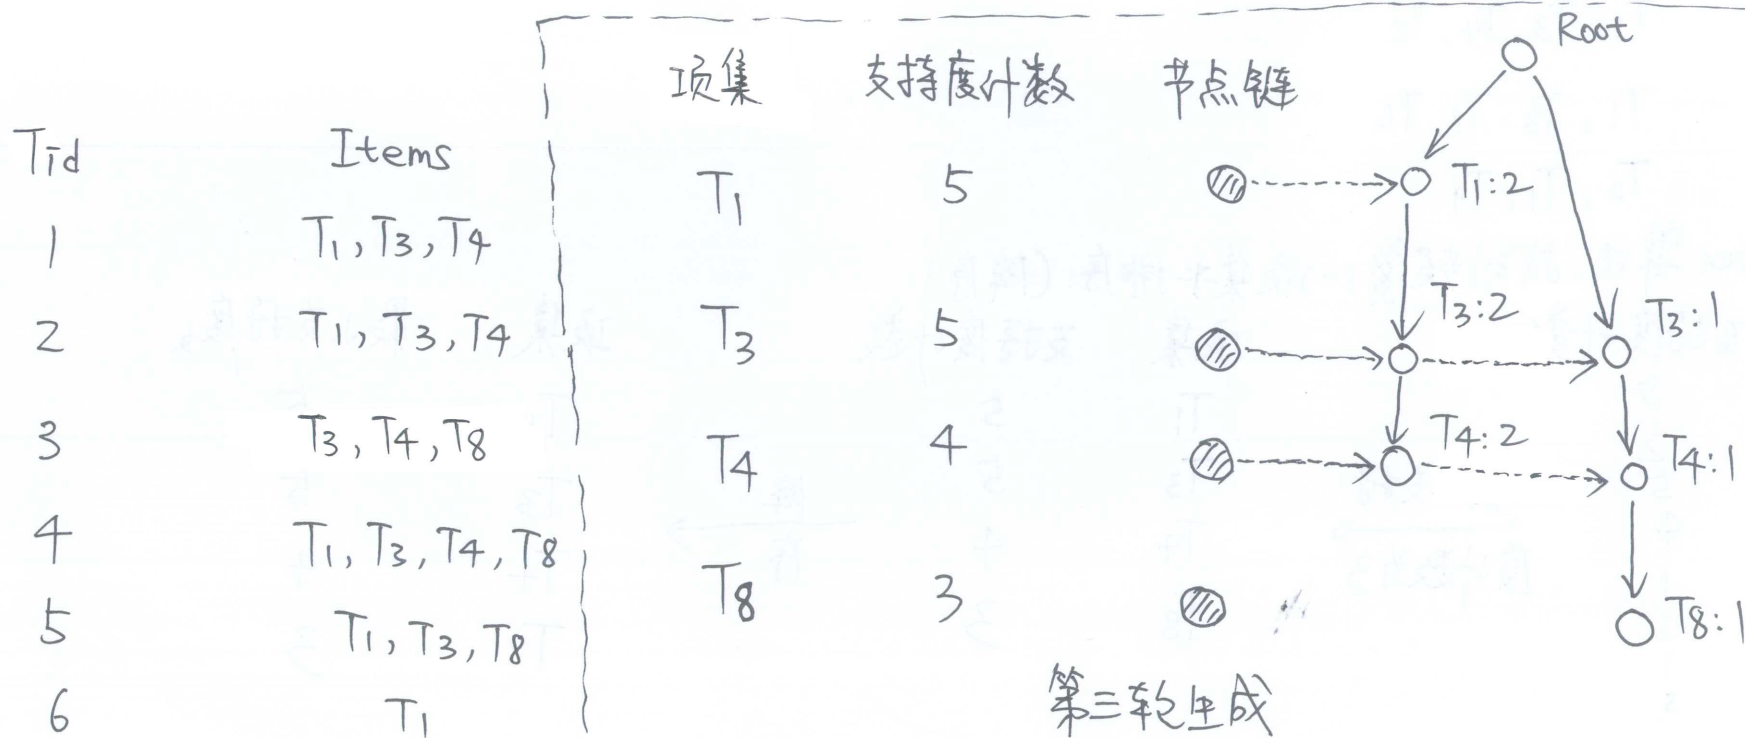 Tid Items
1 T1, T3, T4
2 T1, T3, T4
3 T3, T4, T8
4 T1, T3, T4, T8
5 T1, T3, T8
6 T1
项集 支持度计数 节点链
T1 5
T3 5
T4 4
T8 3
Root
T1:2
T3:2 T3:1
T4:2 T4:1
T8:1
第三轮生成